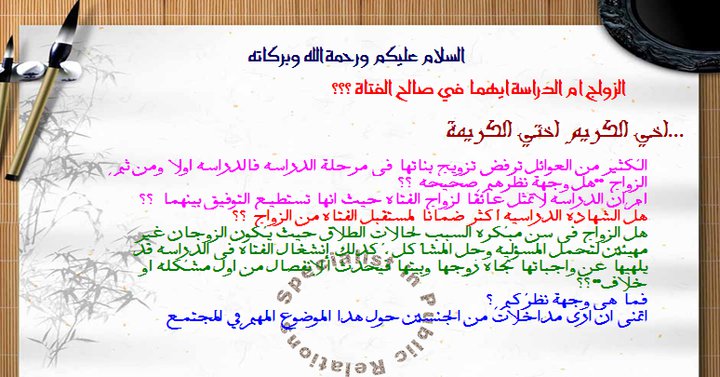 السلام عليكم ورحمة الله وبركاته
الزواج ام الدراسة ايهما في صالح الفتاة ؟؟؟
أخي الكريم أختي الكريمة...
الكثير من العوائل ترفض تزويج بناتها فى مرحلة الدراسه فالدراسه اولا ومن ثم
الزواج **هل وجهة نظرهم صحيحه ؟؟
ام ان الدراسه لاتمثل عائقا لزواج الفتاه حيث انها تستطيع التوفيق بينهما ؟؟
هل الشهاده الدراسيه اكثر ضمانا لمستقبل الفتاه من الزواج ؟؟
هل الزواج فى سن مبكره السبب لحالات الطلاق حيث يكون الزوجان غير
مهيئين لتحمل المسؤليه وحل المشاكل . كذلك إنشغال الفتاه فى الدراسه قد
يلهيها عن واجباتها تجاه زوجها وبيتها فيحدث الانفصال من اول مشكله او
خلاف**؟؟
فما هى وجهة نظركم ؟
اتمنى ان ارى مداخلات من الجنسين حول هذا الموضوع المهم في المجتمع
Specialist in Public Relations